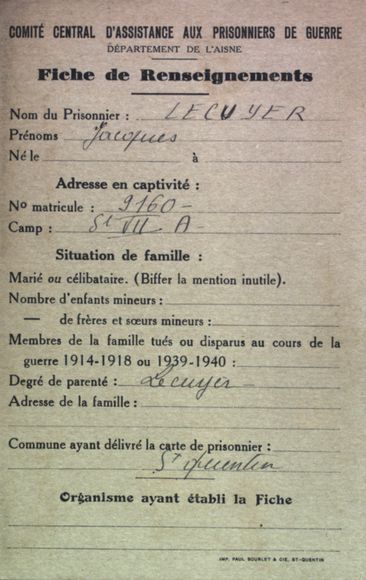 COMITÉ CENTRAL D'ASSISTANCE AUX PRISONNIERS DE GUERRE
DÉPARTEMENT DE L'AISNE
Fiche de Renseignements
Nom du Prisonnier : LECUYER
Prénoms Jacques
Né le à
Adresse en captivité :
No matricule : 9160 -
Camp : St VII A -
Situation de famille :
Marié ou célibataire. (Biffer la mention inutile).
Nombre d'enfants mineurs :
— de frères et sœurs mineurs :
Membres de la famille tués ou disparus au cours de la
guerre 1914-1918 ou 1939-1940 :
Degré de parenté : Lecuyer -
Adresse de la famille :
Commune ayant délivré la carte de prisonnier :
St Quentin
Organisme ayant établi la Fiche
IMP. PAUL BOURLET & CIE, ST-QUENTIN